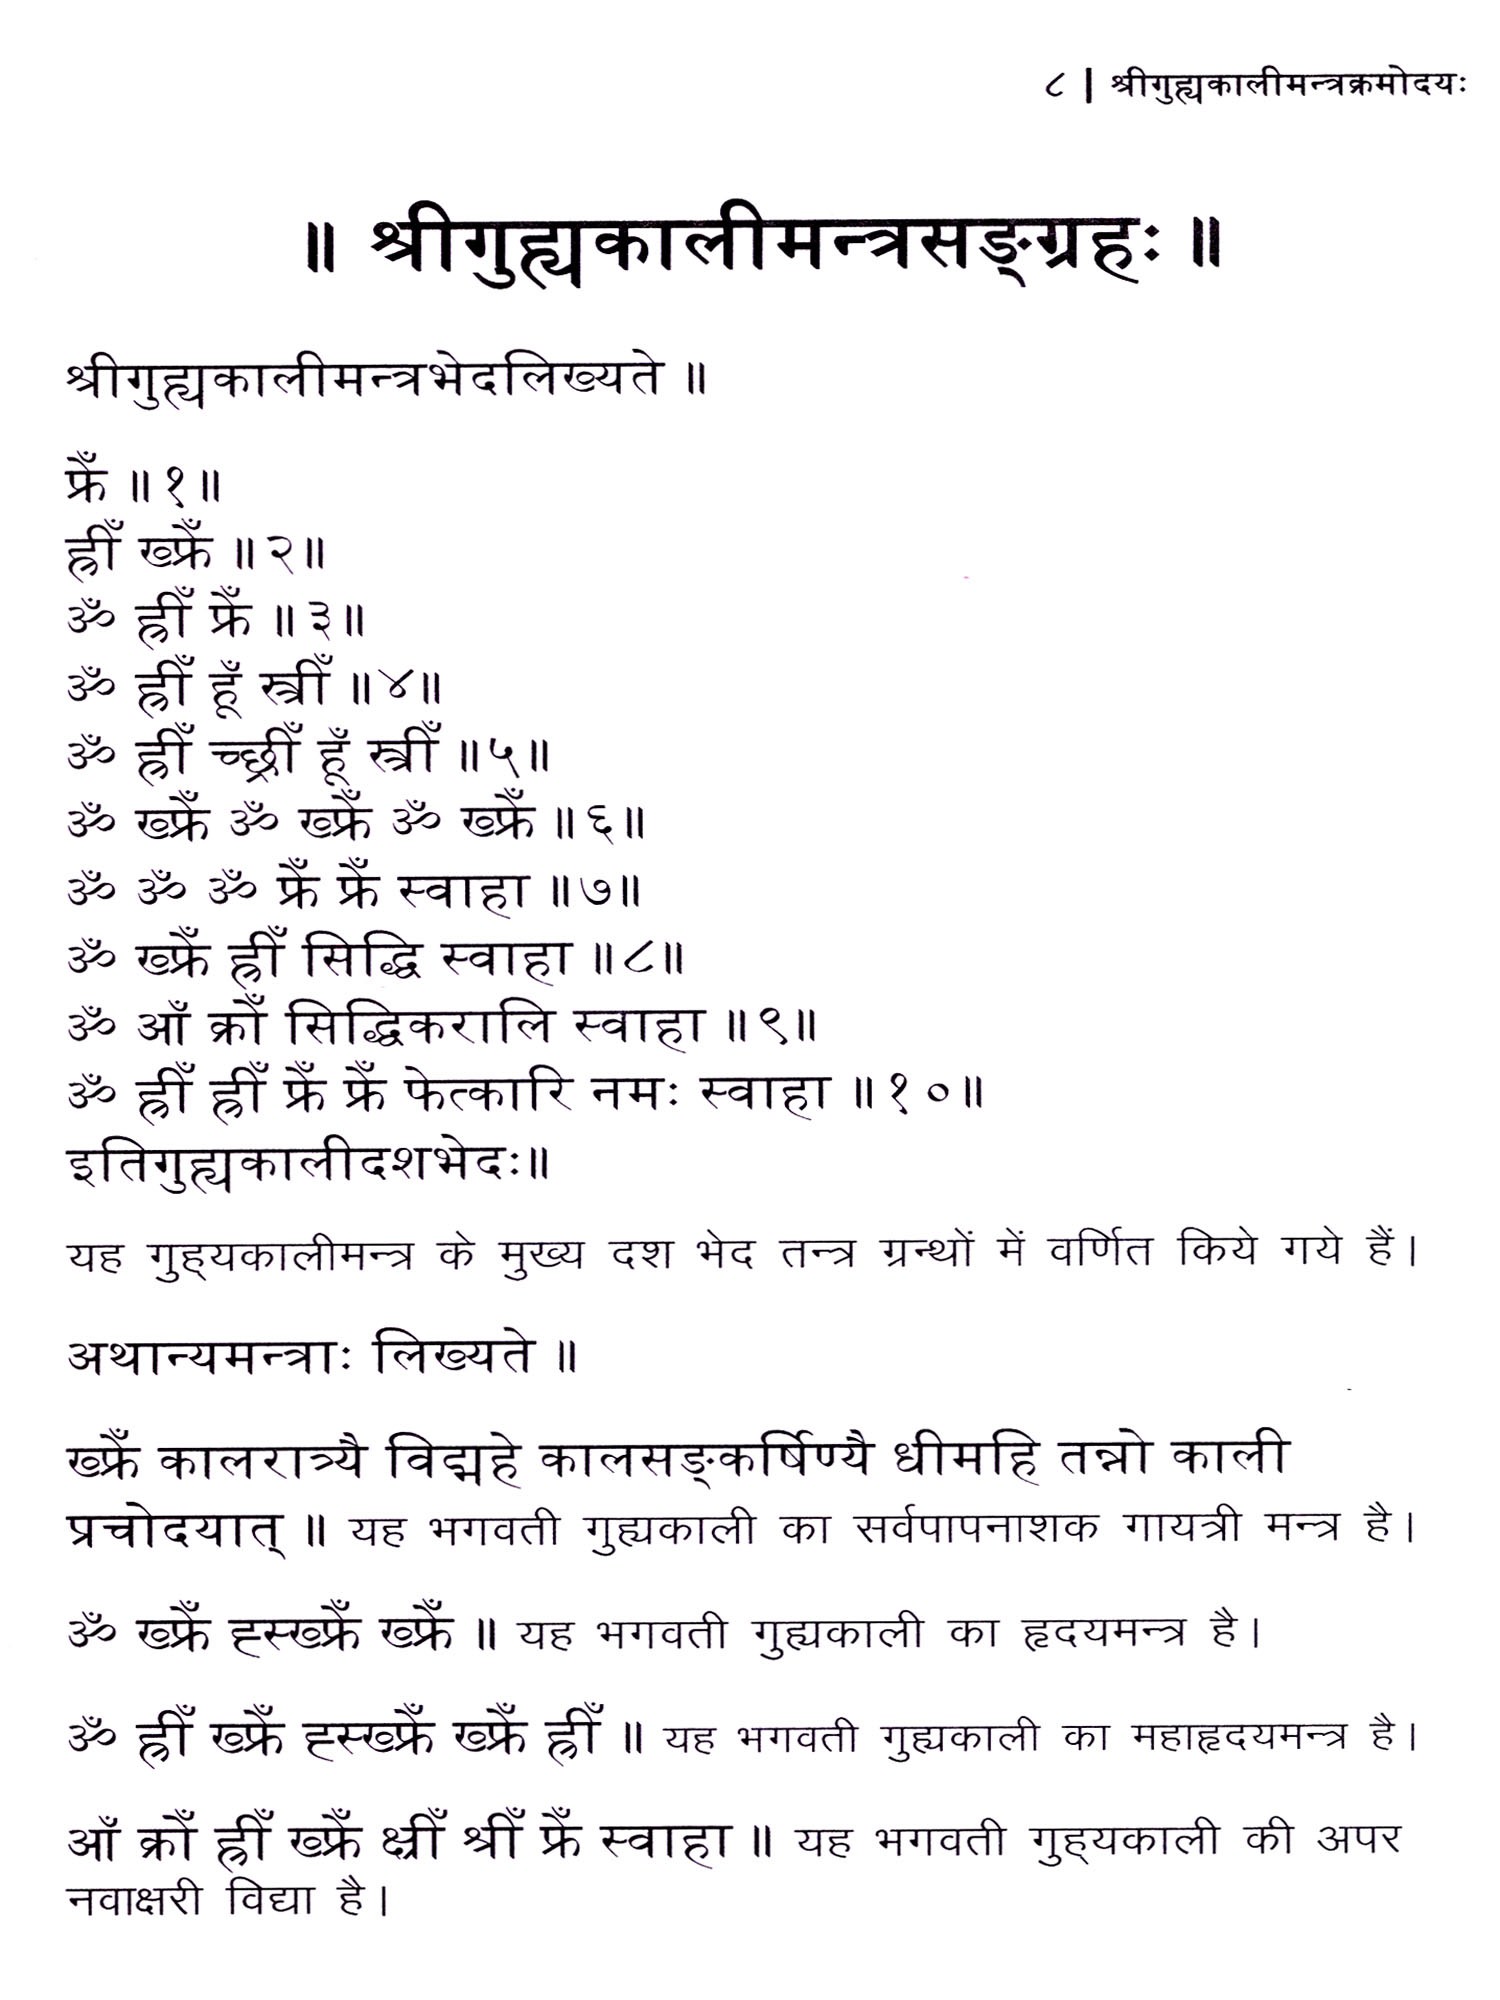 ८ | श्रीगुह्यकालीमन्त्रक्रमोदयः
॥ श्रीगुह्यकालीमन्त्रसङ्ग्रहः ॥
श्रीगुह्यकालीमन्त्रभेदलिख्यते ॥
फ्रेँ ॥१॥
ह्रीँ ख्फ्रेँ ॥२॥
ॐ ह्रीँ फ्रेँ ॥३॥
ॐ ह्रीँ हूँ स्त्रीँ ॥४॥
ॐ ह्रीँ च्छ्रीँ हूँ स्त्रीँ ॥५॥
ॐ ख्फ्रेँ ॐ ख्फ्रेँ ॐ ख्फ्रेँ ॥६॥
ॐ ॐ ॐ फ्रेँ फ्रेँ स्वाहा ॥७॥
ॐ ख्फ्रेँ ह्रीँ सिद्धि स्वाहा ॥८॥
ॐ आँ क्रोँ सिद्धिकरालि स्वाहा ॥९॥
ॐ ह्रीँ ह्रीँ फ्रेँ फ्रेँ फेत्कारि नमः स्वाहा ॥१०॥
इतिगुह्यकालीदशभेदः॥
यह गुह्यकालीमन्त्र के मुख्य दश भेद तन्त्र ग्रन्थों में वर्णित किये गये हैं।
अथान्यमन्त्राः लिख्यते ॥
ख्फ्रेँ कालरात्र्यै विद्महे कालसङ्कर्षिण्यै धीमहि तन्नो काली
प्रचोदयात् ॥ यह भगवती गुह्यकाली का सर्वपापनाशक गायत्री मन्त्र है।
ॐ ख्फ्रेँ ह्स्ख्फ्रेँ ख्फ्रेँ ॥ यह भगवती गुह्यकाली का हृदयमन्त्र है।
ॐ ह्रीँ ख्फ्रेँ ह्स्ख्फ्रेँ ख्फ्रेँ ह्रीँ ॥ यह भगवती गुह्यकाली का महाहृदयमन्त्र है।
आँ क्रोँ ह्रीँ ख्फ्रेँ क्ष्रीँ श्रीँ फ्रेँ स्वाहा ॥ यह भगवती गुह्यकाली की अपर
नवाक्षरी विद्या है।